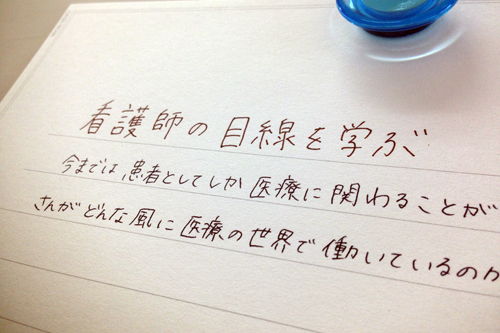 看護師の目線を学ぶ
今までは患者としてしか医療に関わることが
さんがどんな風に医療の世界で働いているのか